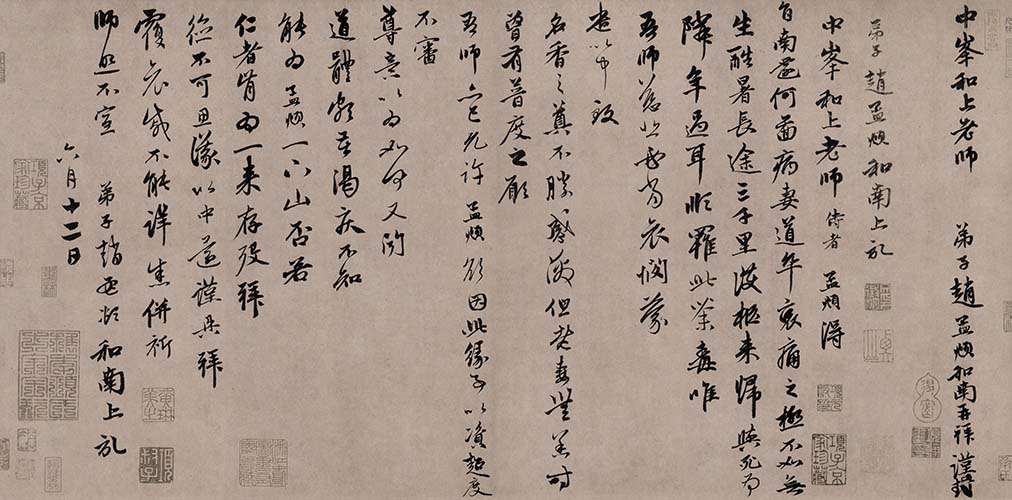 中峯和上老師 弟子趙孟頫和南再拜謹封
弟子趙孟頫和南上䟽
中峯和上老師侍者 孟頫得
旨南還何圖病妻道卒哀痛之極不如無
生酷暑長途三千里護柩來歸與死為
隣年過耳順罹此荼毒唯
吾師慈悲必當哀憫蒙
遣以中致
名香之奠不勝感激但老妻無恙時
曾有普度之願
吾師亦已允許孟頫欲因此緣事以資超度
不審
尊意以為如何又聞
道體頗苦渴疾不知
能為孟頫一下山否若
仁者肯為一來存歿拜
德不可思議以中還謹具拜
覆哀感不能詳悉併祈
師照不宣 弟子趙孟頫和南上䟽
六月十二日
項子京家珍藏
項子京家珍藏